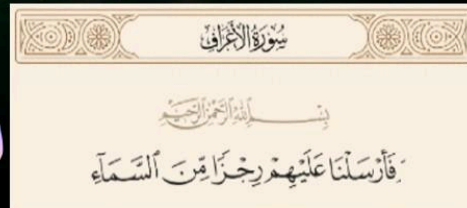 سُورَةُ الْأَعْرَافِ
بِسْمِ اللَّهِ الرَّحْمَٰنِ الرَّحِيمِ
فَأَرْسَلْنَا عَلَيْهِمْ رِجْزًا مِّنَ ٱلسَّمَآءِ